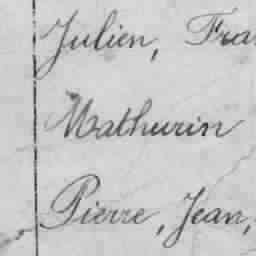 Julien, Fra
Mathurin
Pierre, Jean,